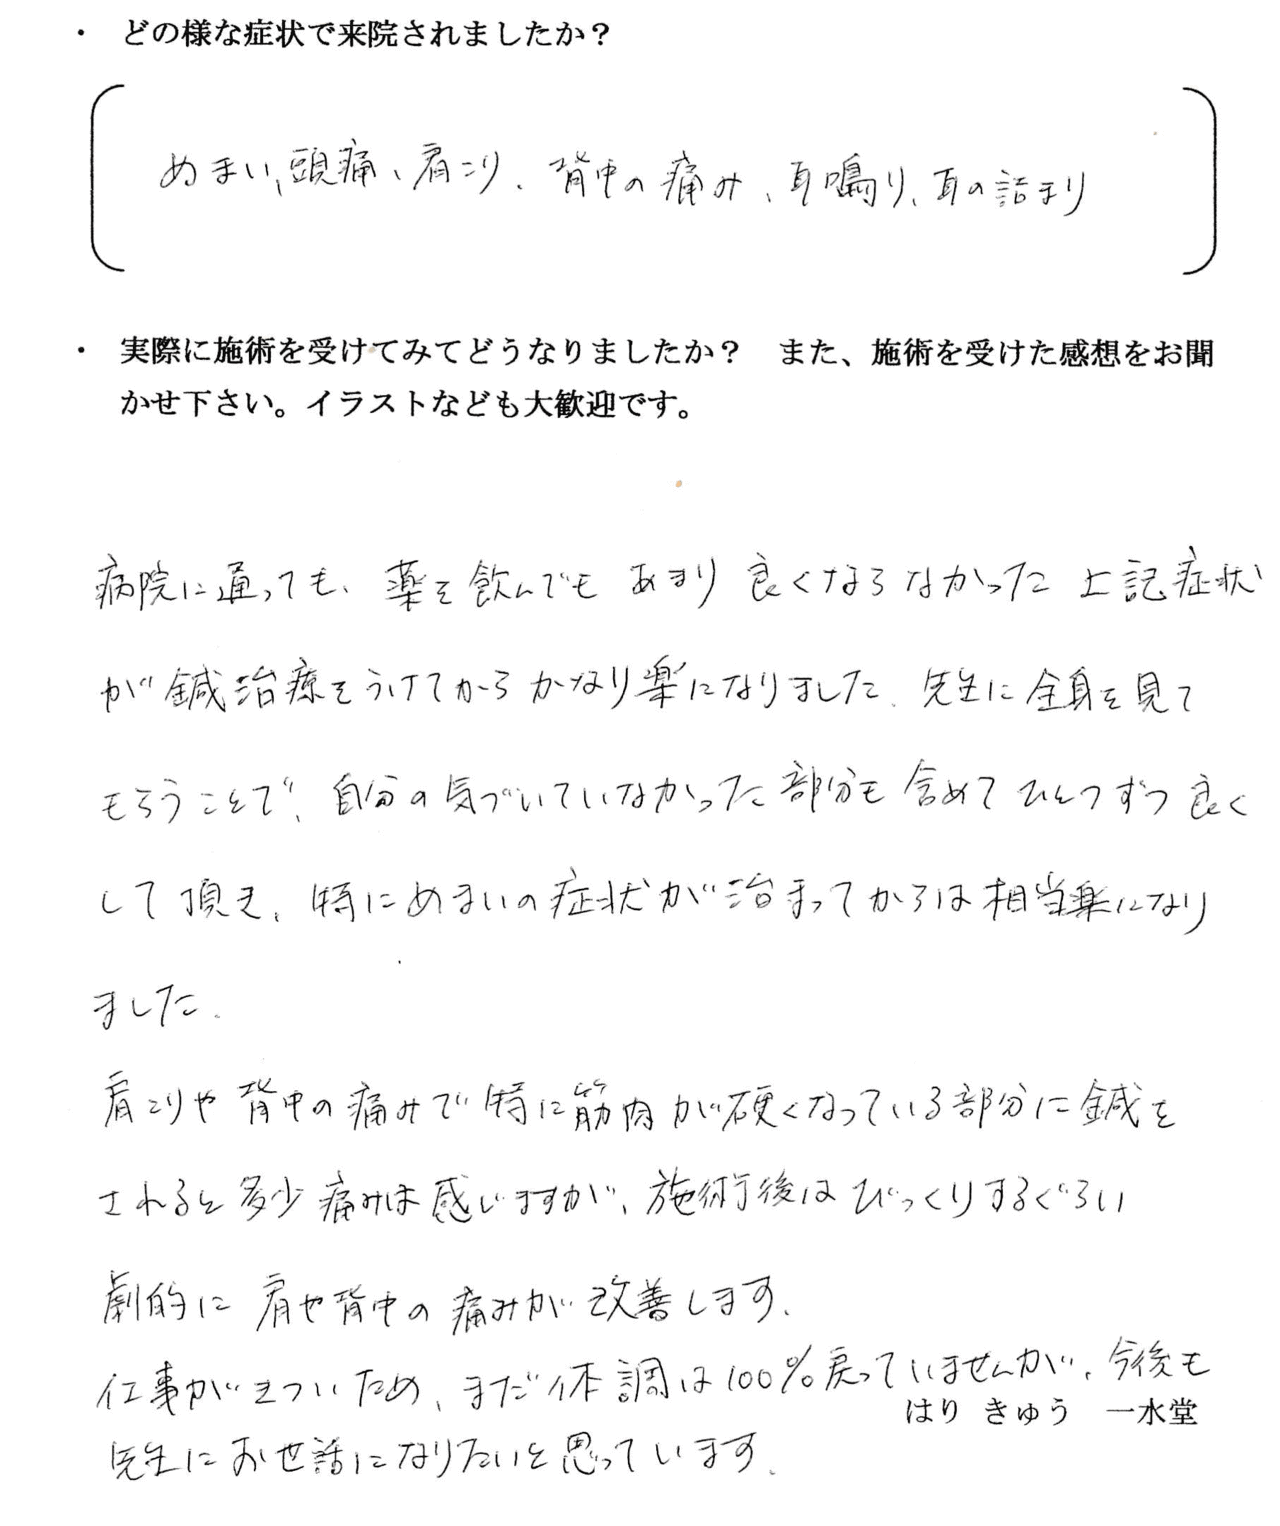 ・ どの様な症状で来院されましたか？
めまい、頭痛、肩こり、背中の痛み、耳鳴り、耳の詰まり
・ 実際に施術を受けてみてどうなりましたか？　また、施術を受けた感想をお聞
かせ下さい。イラストなども大歓迎です。
病院に通っても、薬を飲んでもあまり良くならなかった上記症状
が鍼治療をうけてからかなり楽になりました。先生に全身を見て
もらうことで、自分の気づいていなかった部分も含めてひとつずつ良く
して頂き、特にめまいの症状が治まってからは相当楽になり
ました。
肩こりや背中の痛みで特に筋肉が硬くなっている部分に鍼を
されると多少痛みは感じますが、施術後はびっくりするぐらい
劇的に肩や背中の痛みが改善します。
仕事がきついため、まだ体調は100%戻っていませんが、今後も
はり きゅう　一水堂
先生にお世話になりたいと思っています。